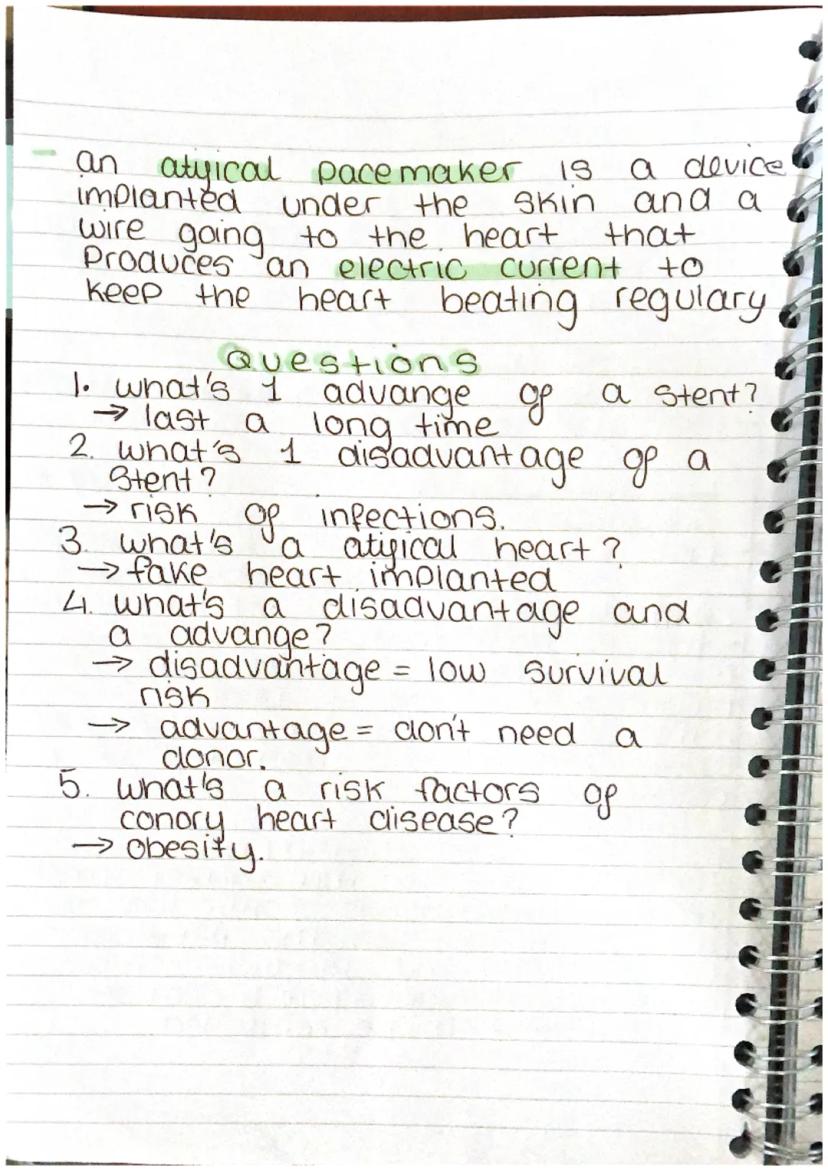 - an atyical pacemaker is a device
implanted under the skin and a
wire going to the heart that
produces an electric current to
keep the heart beating regulary
Questions
1. what's 1 advange of a stent?
→ last a long time
2. what's 1 disadvantage of a
stent?
→ risk of infections.
3. what's a atyical heart?
→ fake heart implanted
4. what's a disadvantage and
a advange?
→ disadvantage = low survival
risk
→ advantage = don't need a
donor.
5. what's a risk factors of
conory heart disease?
→ obesity.